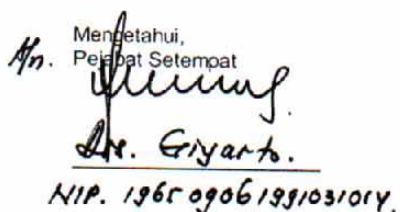 Mengetahui,
A/n. Pejabat Setempat
Drs. Giyarto.
NIP. 19650906 199103 1 014.